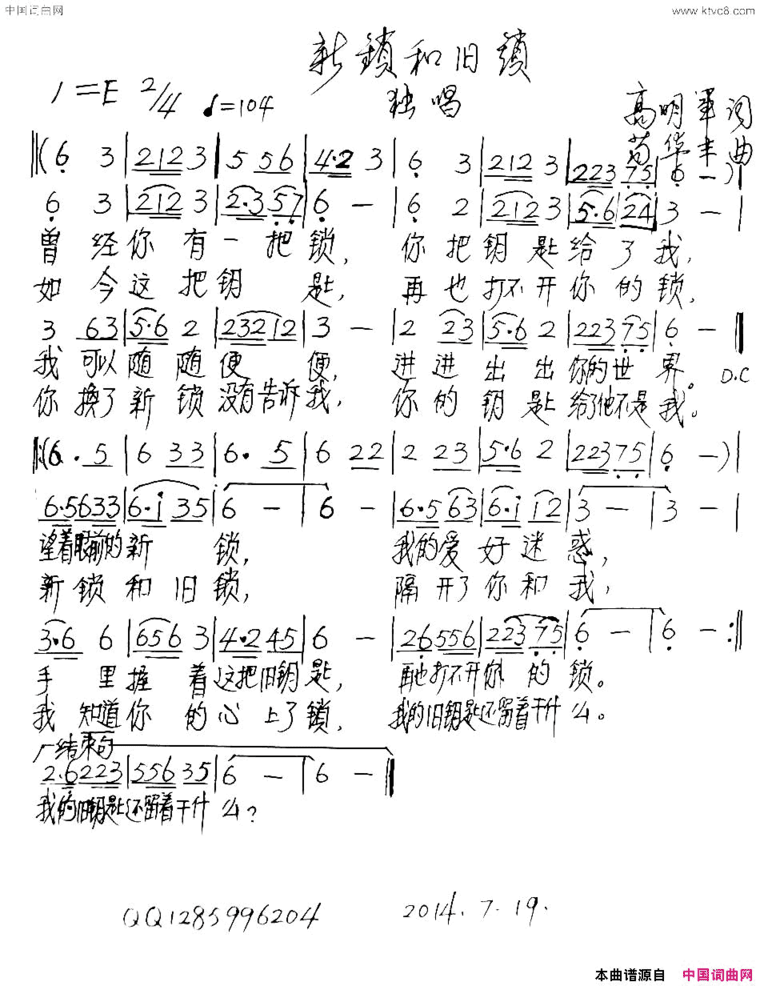 中国词曲网 www.ktvc8.com
新鎖和旧鎖
1=E 2/4 ♩=104 独唱 高明軍词
苟华丰曲
‖(6 3|212 3|5 56|4·2 3|6 3|212 3|223 75|6 -)|
6 3|212 3|2·3 57|6 -|6 2|212 3|5·6 24|3 -|
曾经你有一把锁, 你把钥匙给了我,
如今这把钥匙, 再也打不开你的锁,
3 63|5·6 2|23212|3 -|2 23|5·6 2|223 75|6 -‖
我可以随随便便, 进进出出你的世界。 D.C
你换了新锁没有告诉我, 你的钥匙给了他不是我。
‖:(6· 5|6 33|6· 5|6 22|2 23|5·6 2|22375|6 -)|
6·5633|6·i 35|6 -|6 -|6·5 63|6·i i2|3 -|3 -|
望着眼前的新锁, 我的爱好迷惑,
新锁和旧锁, 隔开了你和我,
3·6 6|656 3|4·2 45|6 -|26556|223 75|6 -|6 -:‖
手里握着这把旧钥匙, 再也打不开你的锁。
我知道你的心上了鎖, 我的旧钥匙还留着干什么。
结束句
2·6223|556 35|6 -|6 -‖
我的旧钥匙还留着干什么?
QQ1285996204 2014.7.19.
本曲谱源自 中国词曲网